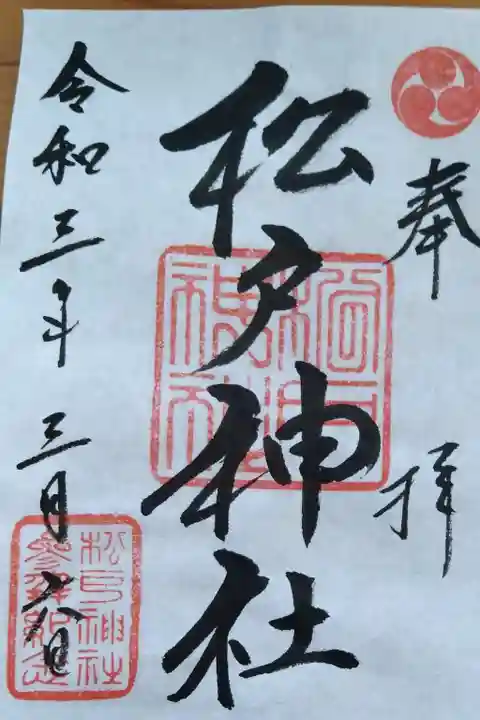 奉拝
松戸神社
令和三年三月六日
松戸神社
参拝記念